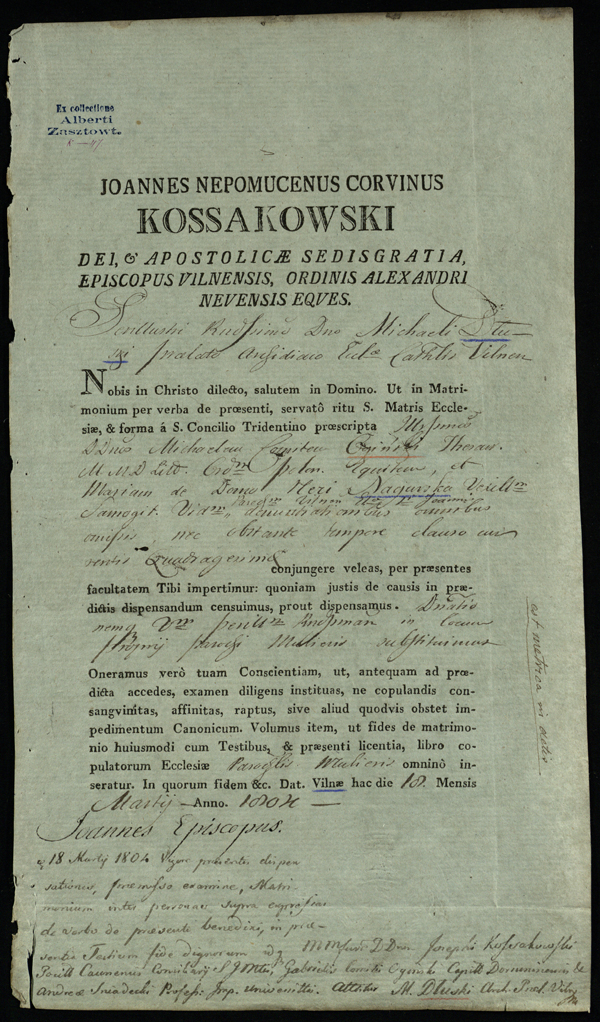 Ex collectione
Alberti
Zasztowt.
JOANNES NEPOMUCENUS CORVINUS
KOSSAKOWSKI
DEI, & APOSTOLICÆ SEDISGRATIA,
EPISCOPUS VILNENSIS, ORDINIS ALEXANDRI
NEVENSIS EQVES.
Dno Michaeli Dłu-
ski Prælato Vilnen
Nobis in Christo dilecto, salutem in Domino. Ut in Matri-
monium per verba de præsenti, servatô ritu S. Matris Eccle-
siæ, & forma á S. Concilio Tridentino præscripta
Michaelem Comitem Oginski Thesau.
M M D Litt. Ord. Polon. Equitem, et
Mariam de Domo Neri Nagurska
Samogit. omnibus
omissis, nec obstante tempore clauso cur
rentis Quadragesimæ
conjungere veleas, per præsentes
facultatem Tibi impertimur: quoniam justis de causis in præ-
dictis dispensandum censuimus, prout dispensamus.
in locum
Proprij Parochi Mulieris substituimus
Oneramus verò tuam Conscientiam, ut, antequam ad præ-
dicta accedes, examen diligens instituas, ne copulandis con-
sangvinitas, affinitas, raptus, sive aliud quodvis obstet im-
pedimentum Canonicum. Volumus item, ut fides de matrimo-
nio huiusmodi cum Testibus, & præsenti licentia, libro co-
pulatorum Ecclesiæ Mulieris omninò in-
seratur. In quorum fidem &c. Dat. Vilnæ hac die 18. Mensis
Martij Anno. 1804
Joannes Episcopus.
18 Martij 1804 Vigore præsentis dispen
sationis, præmisso examine, Matri-
monium inter personas supra expressas
de verbo de præsente benedixi, in præ-
sentia Testium fide dignorum Josephi Kossakowski
Gabrielis Comitis Oginski
Andreæ Sniadecki Profess. Imp. Universitis. M. Dłuski
est metrica in actis